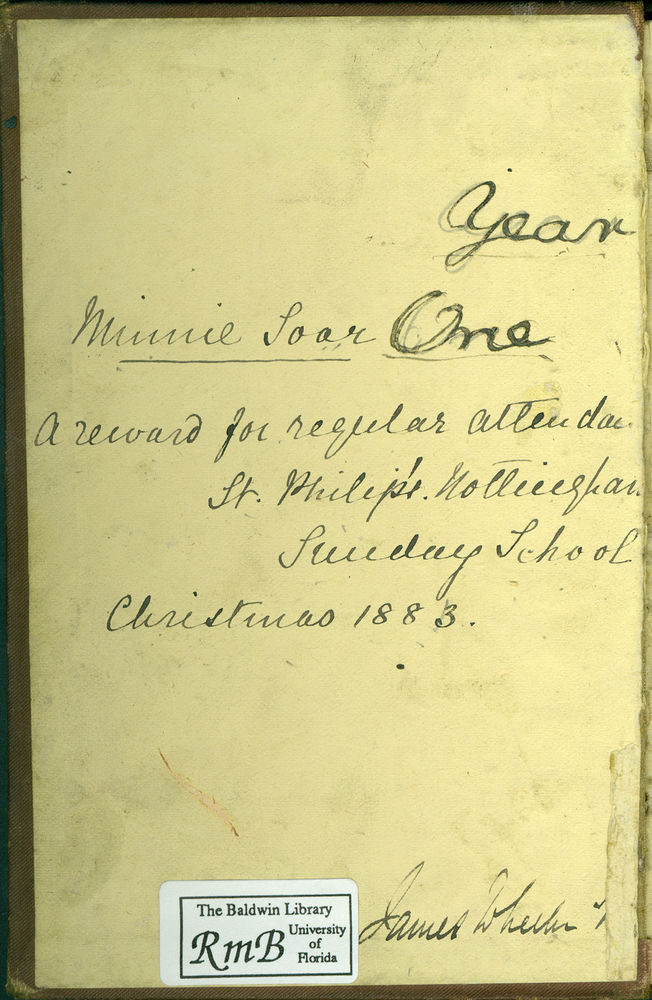 Year
Minnie Soar One
A reward for regular attendan
St. Philip's. Nottingham
Sunday School
Christmas 1883.
James Wheeler
The Baldwin Library
RmB University of Florida